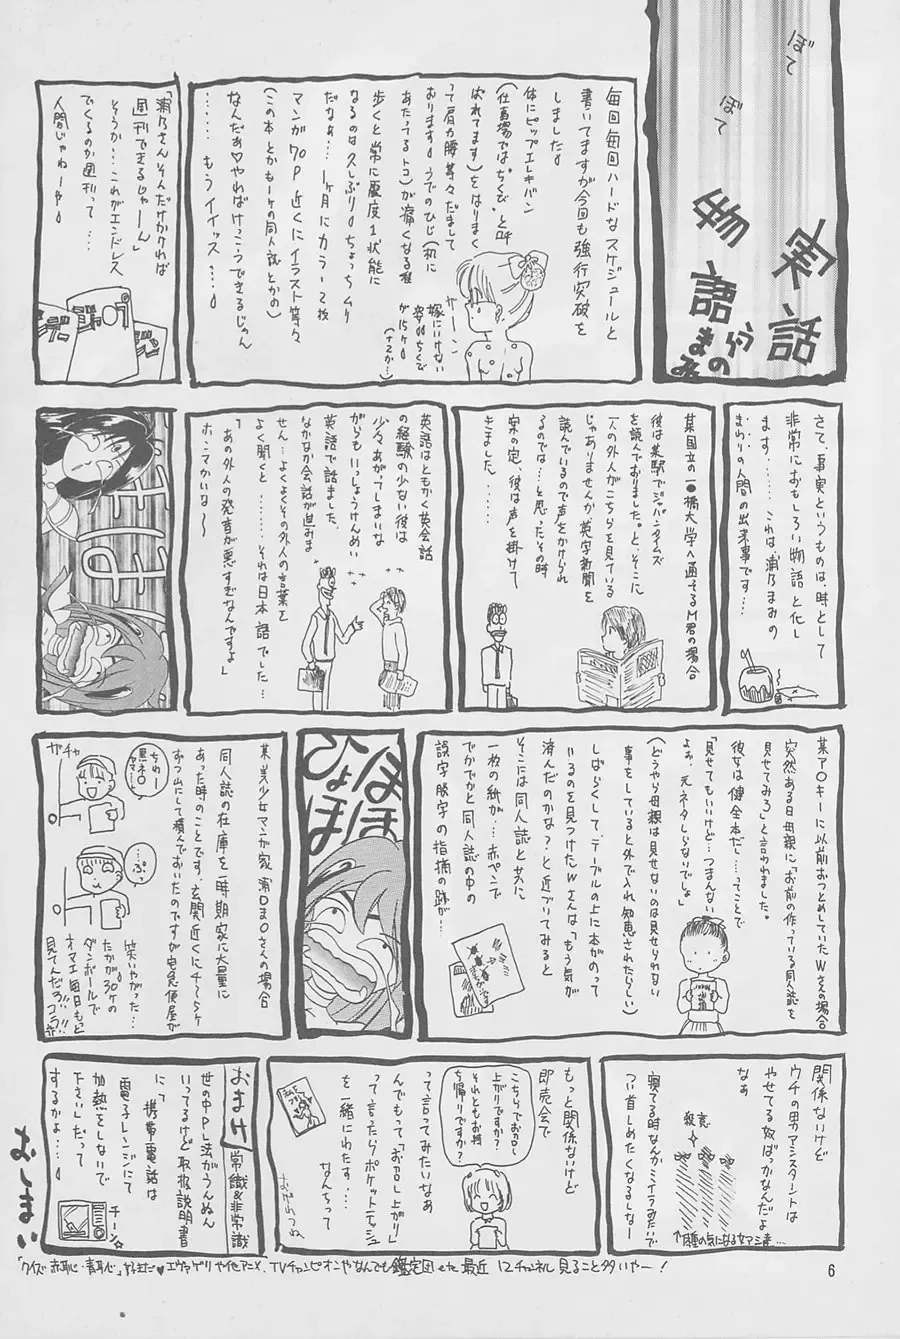 ぼて
ぼて
実話
物語
浦乃
まみ
毎回毎回ハードなスケジュールと
書いてますが今回も強行突破を
しました。
体にピップエレキバン
(仕事場では"ちくび"と呼
ばれてます)をはりまく
って肩力腰等々だまして
おります。うでのひじ(机に
あたってるトコ)が痛くなる程
歩くと常に震度1状態に
なるのは久しぶり。ちょっちムリ
だなぁ…。1ヶ月にカラー7枚
マンガ70P近くにイラスト等々
(この本とかもーケの同人誌とかの)
なんだぁ♡やればけっこうできるじゃん
……、もうイイッス…。
ガーーン
嫁にいけない
姿。ちくびで
が15ヶ。
(+2か…)
「浦乃さんそんだけかければ
週刊できるじゃーん」
そうか…これがエンドレス
でくるのか週刊って…
人間じゃねーや。
さて、事実というものは、時として
非常におもしろい物語と化し
ます……。これは浦乃まみの
まわりの人間の出来事です…。
某国立の一●橋大学へ通ってるM君の場合
彼は某駅でジャパンタイムズ
を読んでおりました。と、そこに
一人の外人がこちらを見ている
じゃありませんか英字新聞を
読んでいるので声をかけられ
るのでは…と思ったその時
案の定、彼は声を掛けて
きました……。
英語はともかく英会話
の経験の少ない彼は
少々あがってしまいな
がらもいっしょうけんめい
英語で話ました。
なかなか会話が進みま
せん…よくよくその外人の言葉を
よく聞くと……それは日本語でした…
「あの外人の発音が悪すぎなんですよ」
ホンマかいな〜
某ア○キーに以前おつとめしていたWさんの場合
突然ある日母親に「お前の作っている同人誌を
見せてみろ」と言われました。
彼女は健全本だし…ってことで
「見せてもいいけど…つまんない
よぉ、元ネタしらないでしょ」
(どうやら母親は見せないのは見せられない
事をしていると外で入れ知恵されたらしい)
しばらくして、テーブルの上に本がのって
いるのを見つけたWさんは「もう気が
済んだのかな?」と近ブリてみると
そこには同人誌と共に
一枚の紙が…赤ペンで
でかでかと同人誌の中の
誤字脱字の指摘の跡が…
ほほ
ひょほ
某・美少女マンガ家 浦○ま○さんの場合
同人誌の在庫を一時期家に大量に
あった時のことです。玄関近くに4〜5ヶ
ずつムにして積んでおいたのですが宅急便屋が
ガチャ
ちわー
黒ネ○
ヤマト〜
…ぷ
笑いやがった…
たかが30ヶの
ダンボールで
オマエ毎日もっと
見てんだろ!!コラァ!!
関係ないけど
ウチの男アシスタントは
やせてる奴ばっかなんだよ
なぁ
殺意
寝てる時なんかミイラみたいで
つい首しめたくなるしなー
もっと関係ないけど
即売会で
こちらでお召し
上がりですか?
それともお持
ち帰りですか?
って言ってみたいなぁ
んでもって「お召し上がり」
って言ったらポケットティッシュ
を一緒にわたす…
なんちって
おまけ
常識&非常識
世の中PL法がうんぬん
いってるけど取扱説明書
に
携帯電話は
電子レンジにて
加熱をしないで
下さいしだって
するかよ…。
チーン☆
おしまい
「クイズ赤恥・青恥」好きだ♥エヴァゲリや他アニメ、TVチャンピオンやなんでも鑑定団etc最近12チャンネル見ること多いやー!
6